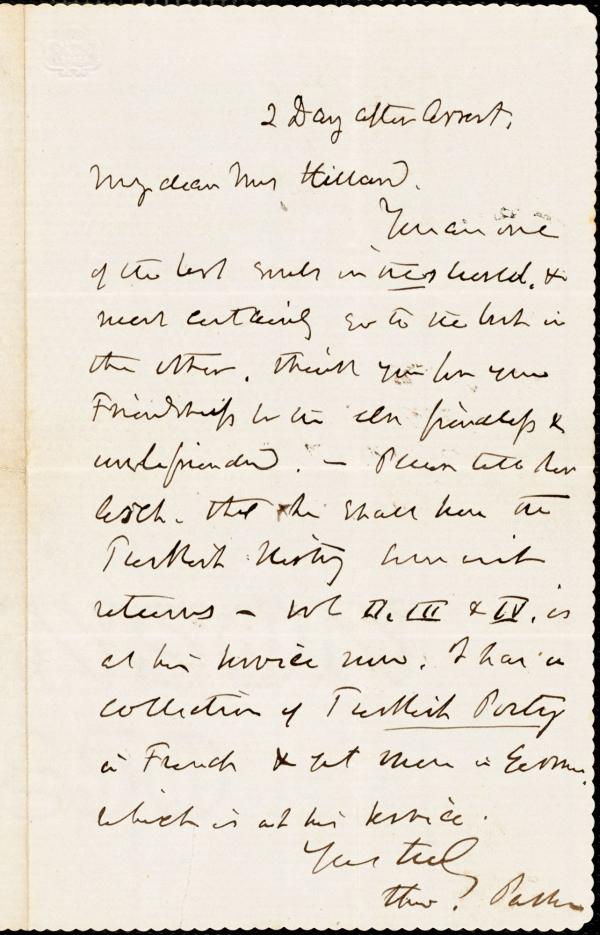 2 Day after Arrest.
My dear Mrs Hillard.
You are one
of the best souls in this world, &
most certainly go to the best in
the other. Thank you for your
Friendship to the else friendless &
unbefriended. — Please tell
that he shall have the
Turkish History soon as it
returns — Vol II. III & IV. is
at his service now. I have a
collection of Turkish Poetry
in French & yet more in German,
which is at his service.
Yours truly
Theo. Parker